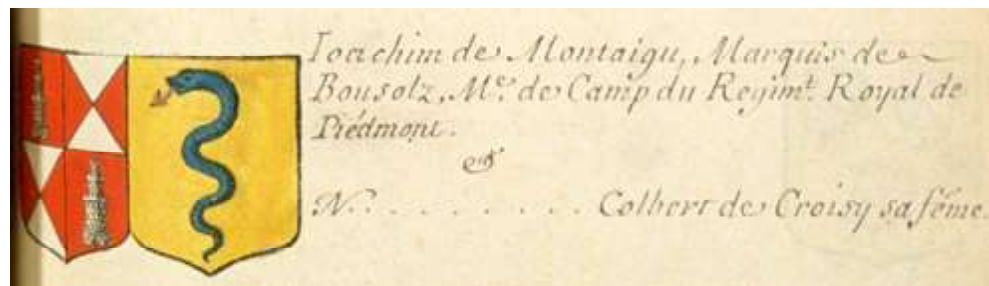 Ioachim de Montaigu, Marquis de
Bousolz, M.e de Camp du Regim.t Royal de
Piédmont.
&
N. . . . . . . . . Colbert de Croisy sa fẽme.